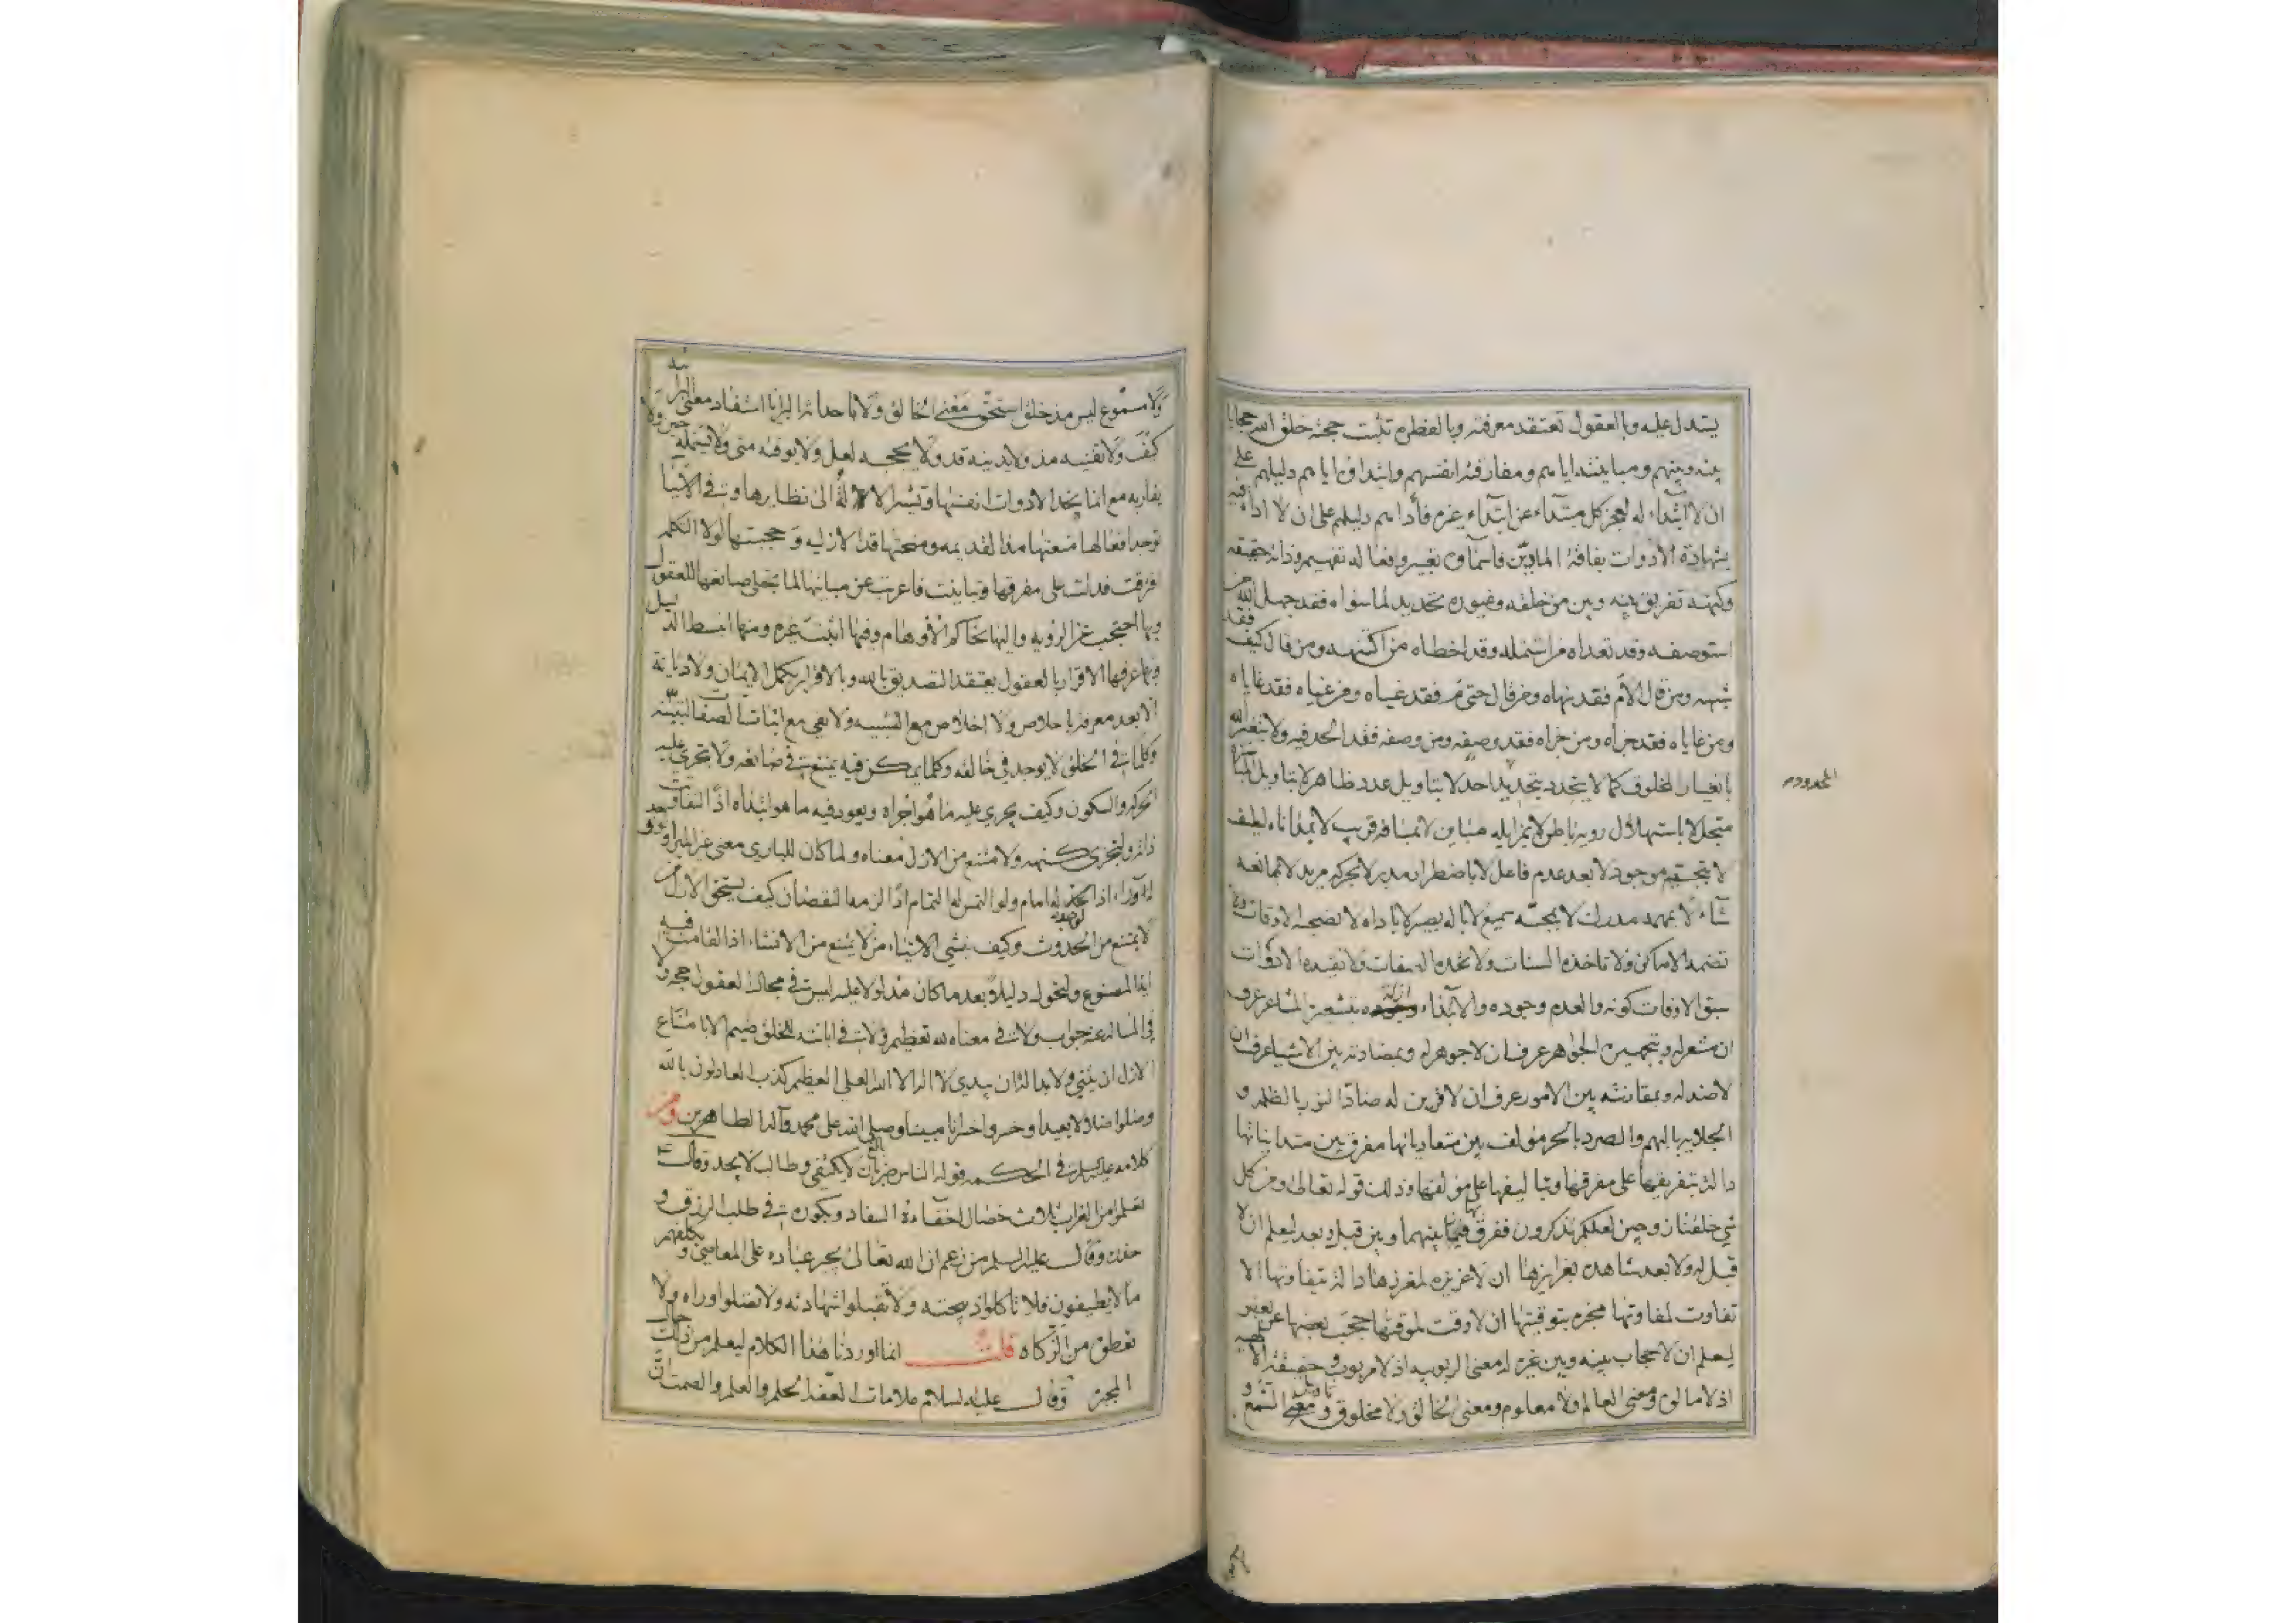 يستدل عليه وبالعقول تعتقد معرفته وبالفطرة تثبت حجته خلق الله حجابا
بينه وبينهم ومباينته اياهم ومفارقته انيتهم وابتداؤه اياهم دليلهم على
ان لا ابتداء له لعجز كل مبتداء عن ابتداء غيره فأداهم دليلهم على ان لا اداة فيه
بشهادة الادوات بفاقة المادين فاسماؤه تعبير وافعاله تفهيم وذاته حقيقه
وكنهه تفريق بينه وبين خلقه وغيوره تحديد لما سواه فقد جهل الله من
استوصفه وقد تعداه من اشتمله وقد اخطاه من اكتنهه ومن قال كيف فقد
شبهه ومن قال الام فقد نهاه ومن قال حتى م فقد غياه ومن غياه فقد غاياه
ومن غاياه فقد جزاه ومن جزاه فقد وصفه ومن وصفه فقد الحد فيه ولا يتغير الله
بانغيار المخلوق كما لا يتحدد بتحديد احد لا بتاويل عدد ظاهر لا بتاويل المباشرة
متجل لا باستهلال رويه باطن لا بمزايله مباين لا بمسافه قريب لا بمداناه لطيف
لا بتجسم موجود لا بعد عدم فاعل لا باضطرار مدبر لا بحركه مريد لا بهمامه
شاء لا بهمه مدرك لا بمجسه سميع لا باله بصير لا باداه لا تصحبه الاوقات ولا
تضمنه الاماكن ولا تاخذه السنات ولا تحده الصفات ولا تقيده الادوات
سبق الاوقات كونه والعدم وجوده والابتداء ازله بتشعيره المشاعر عرف
ان لا مشعر له وبتجهيره الجواهر عرف ان لا جوهر له وبمضادته بين الاشياء عرف ان
لا ضد له وبمقارنته بين الامور عرف ان لا قرين له ضاد النور بالظلمه و
الجلايه بالبهم والصرد بالحر مؤلف بين متعادياتها مفرق بين متدانياتها
دالة بتفريقها على مفرقها وتباليفها على مؤلفها وذلك قوله تعالى ومن كل
شي خلقنا زوجين لعلكم تذكرون ففرق بها بينهما وبين قبل وبعد ليعلم ان لا
قبل له ولا بعد شاهده بغرايزها ان لا غريزه لمغرزها دالة بتفاوتها الا
تفاوت لمفاوتها مخبره بتوقيتها ان لا وقت لموقتها حجب بعضها عن بعض
ليعلم ان لا حجاب بينه وبين غيره له معنى الربوبيه اذ لا مربوب وحقيقة الالهيه
اذ لا مالوه ومعنى العالم ولا معلوم ومعنى الخالق ولا مخلوق وتاويل السمع
المحدود
ولا مسموع ليس مذ خلق استحق معنى الخالق ولا باحداثه البرايا استفاد معنى البرائيه
كيف ولا تغيبه مذ ولا تدنيه قد ولا يحجبه لعل ولا يوقته متى ولا يشمله حين ولا
يقاربه مع انما تحد الادوات انفسها وتشير الالة الى نظايرها وفي الاشيا
توجد افعالها منعتها مذ القديمه وحمتها قد الازليه وجبتها لولا التكمله
افترقت فدلت على مفرقها وتباينت فاعربت عن مباينها لما تجلى صانعها للعقول
وبها احتجب عن الرؤيه واليها تحاكم الاوهام وفيها اثبت غيره ومنها انبسط الدليل
وبها عرفها الاقرار بالعقول يعتقد التصديق بالله وبالاقرار يكمل الايمان ولا ديانة
الا بعد معرفة باخلاص ولا اخلاص مع التشبيه ولا نفي مع اثبات الصفات للتشبيه
وكلما في الخلق لا يوجد في خالقه وكلما يمكن فيه يمتنع في صانعه ولا تجري عليه
الحركه والسكون وكيف يجري عليه ما هو اجراه ويعود فيه ما هو ابتداه اذا لتفاوتت
ذاته ولتجزى كنهه ولا متنع من الازل معناه ولما كان للباري معنى غير المبرا ولو حد
له وراء اذا لحد له امام ولو التمس له التمام اذا لزمه النقصان كيف يستحق الازل من
لا يمتنع من الحدوث وكيف ينشي الاشياء من لا يمتنع من الانشاء اذا لقامت فيه
آية المصنوع ولتحول دليلا بعد ما كان مدلولا عليه ليس في محال القول حجه ولا
في المسأله عنه جواب ولا في معناه لله تعظيم ولا في ابانته للخلق ضيم الا بامتناع
الازل ان يثنى ولا بدا له ان يبدى لا اله الا الله العلي العظيم كذب العادلون بالله
وضلوا ضلالا بعيدا وخسروا خسرانا مبينا وصلى الله على محمد وآله الطاهرين ومن
كلامه عليه السلام في الحكمه قوله الناس ضربان بالغ لا يكتفي وطالب لا يجد وقال ع
تعلموا من الغراب ثلاث خصال اخفاءه السفاد وبكوره في طلب الرزق و
حذره وقال عليه السلم من زعم ان الله تعالى يجبر عباده على المعاصي و يكلفهم
ما لا يطيقون فلا تاكلوا ذبيحته ولا تقبلوا شهادته ولا تصلوا وراه ولا
تعطوه من الزكاه قلت انما اوردنا هذا الكلام ليعلم من ذلك حال
المجبر وقال عليه السلام علامات الفقه الحلم والعلم والصمت ان